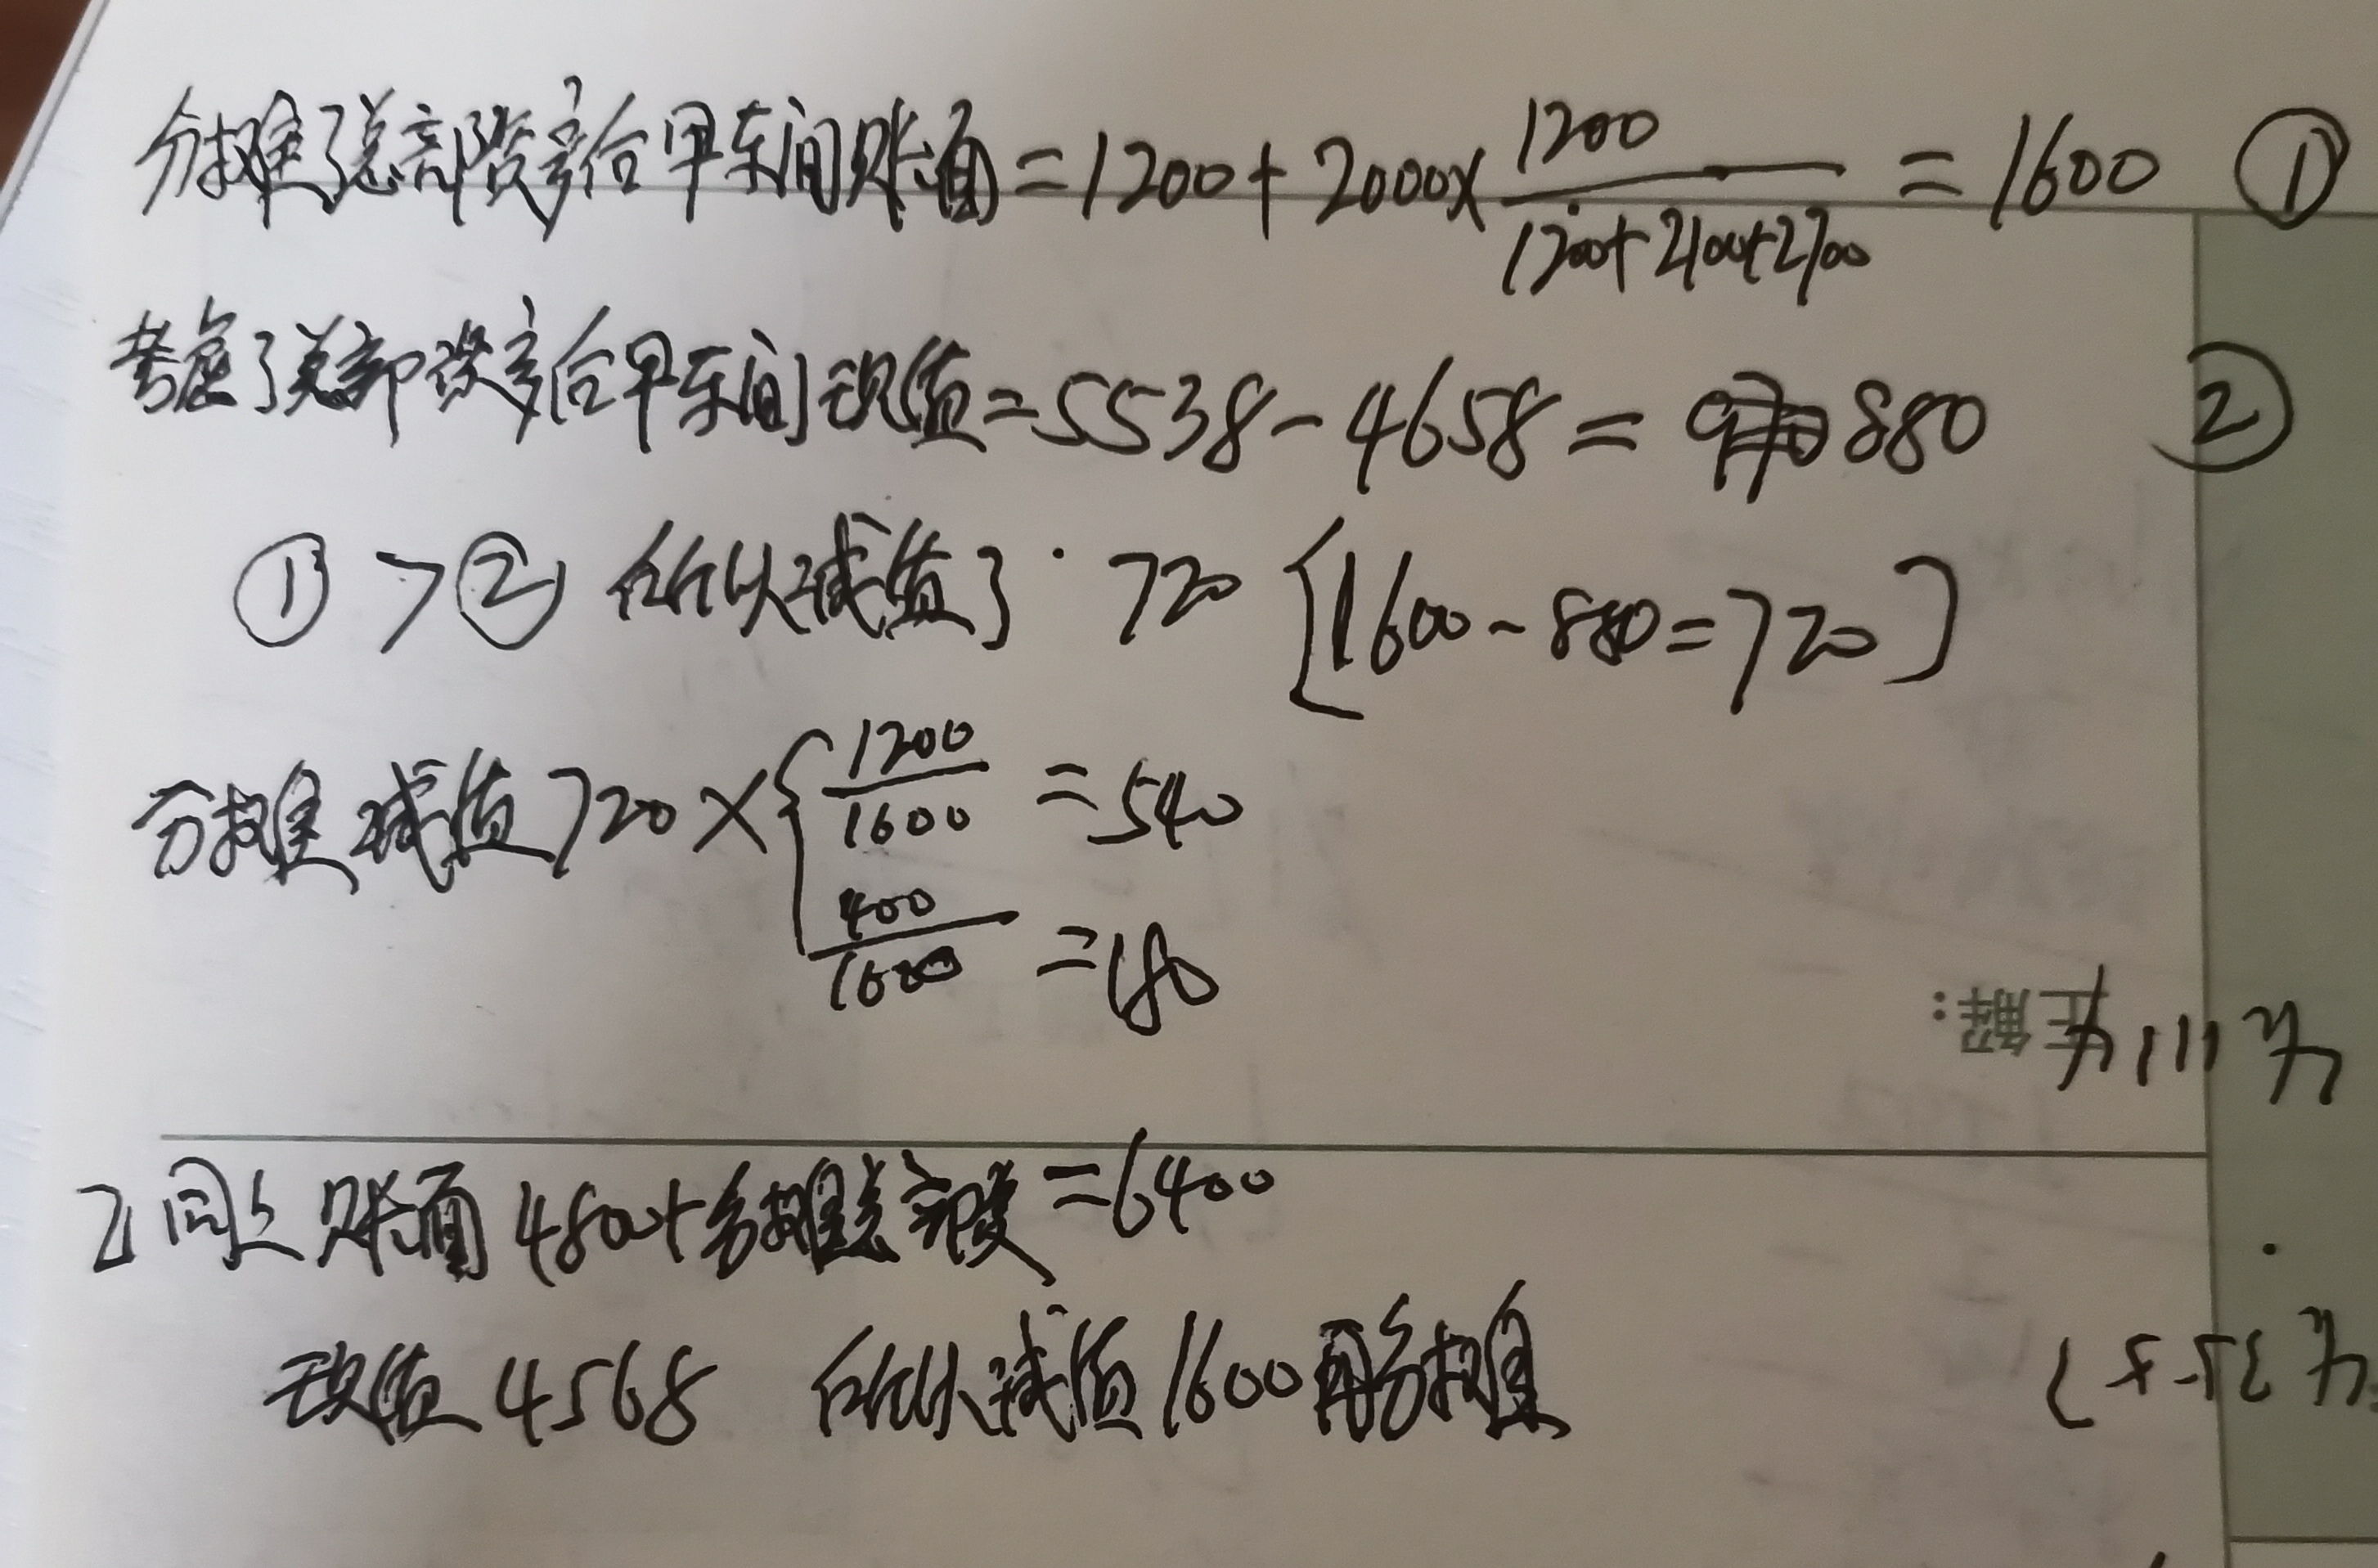 分摊了总部资产后甲车间账面=1200+2000×1200/(1200+2100+2700)=1600 ①
考虑了总部资产后甲车间现值=5538-4658=880 ②
①>② 所以减值了720[1600-880=720]
分摊减值720×{1200/1600=540
400/1600=180
正解:
2 同上 账面4800+分摊总部资=6400
现值4568 所以减值1600再分摊